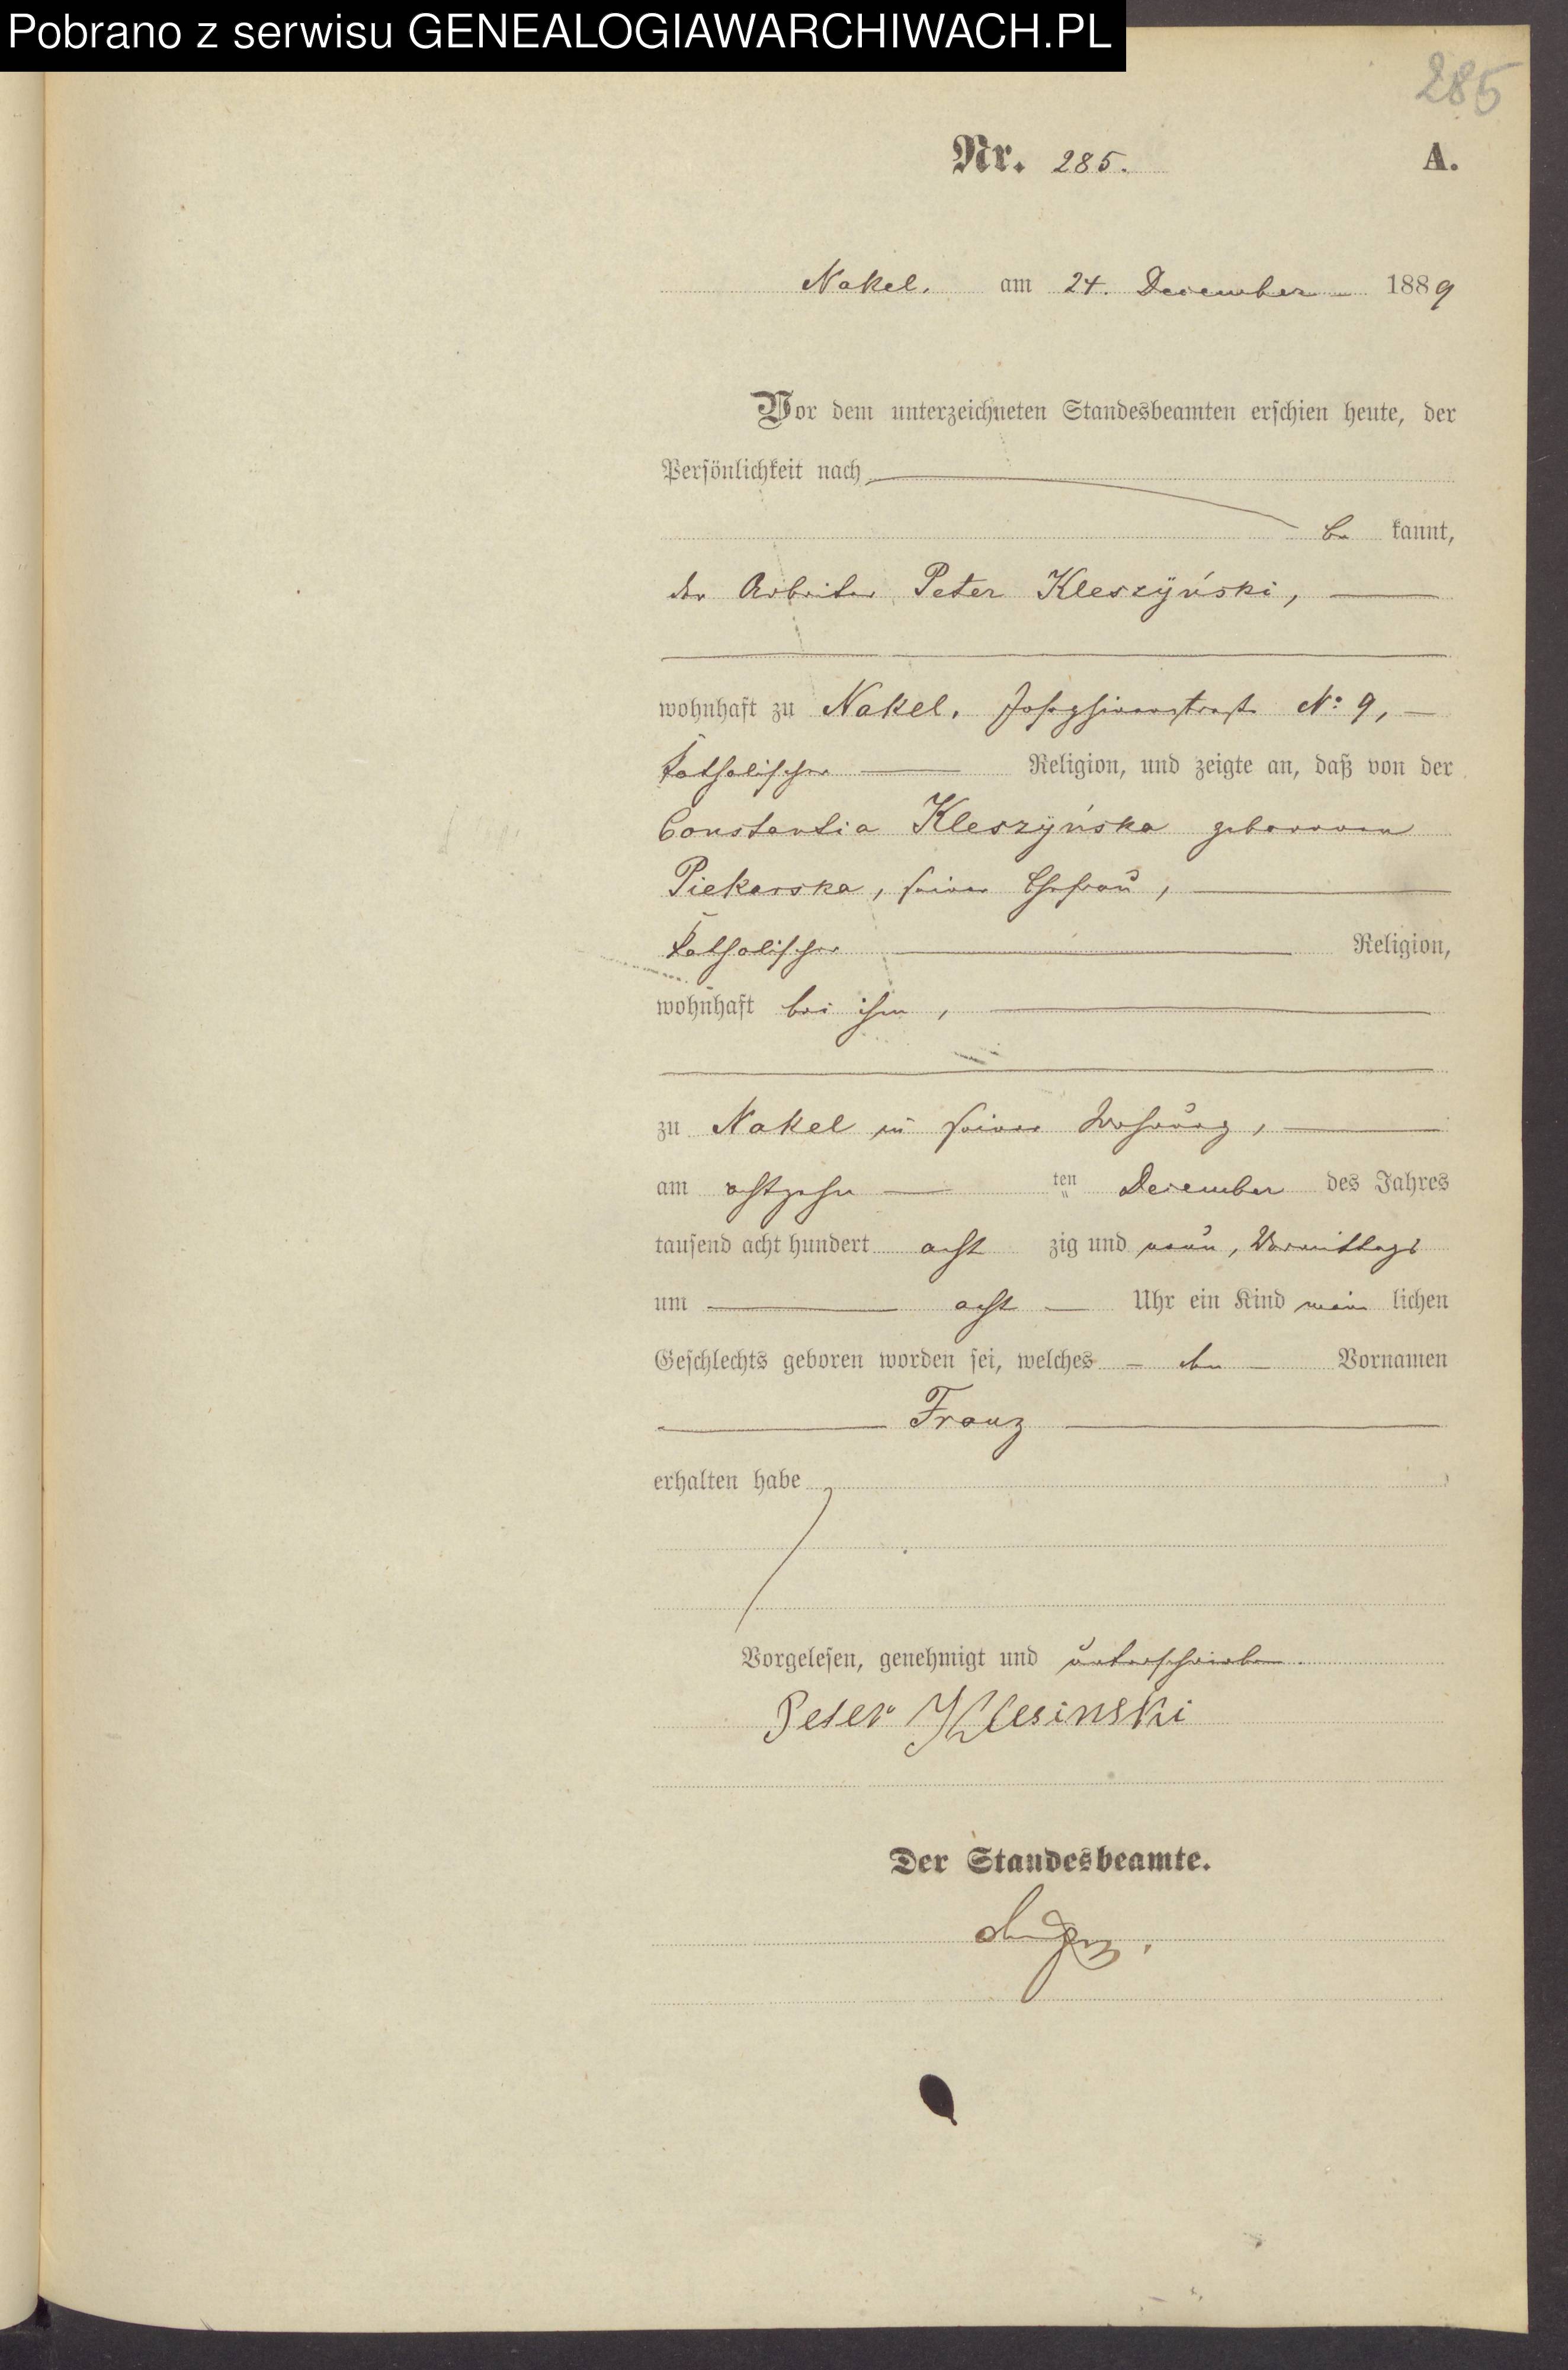 Pobrano z serwisu GENEALOGIAWARCHIWACH.PL
285
Nr. 285. A.
Nakel, am 24. December 1889
Vor dem unterzeichneten Standesbeamten erschien heute, der
Persönlichkeit nach
be kannt,
der Arbeiter Peter Kleszÿński,
wohnhaft zu Nakel, Josephinenstraße No 9,
katholischer Religion, und zeigte an, daß von der
Constantia Kleszÿńska geborenen
Piekarska, seiner Ehefrau,
katholischer Religion,
wohnhaft bei ihm,
zu Nakel in seiner Wohnung,
am achtzehn ten December des Jahres
tausend acht hundert acht zig und neun, Vormittags
um acht Uhr ein Kind männ lichen
Geschlechts geboren worden sei, welches den Vornamen
Franz
erhalten habe
Vorgelesen, genehmigt und unterschrieben.
Peter Klesinski
Der Standesbeamte.